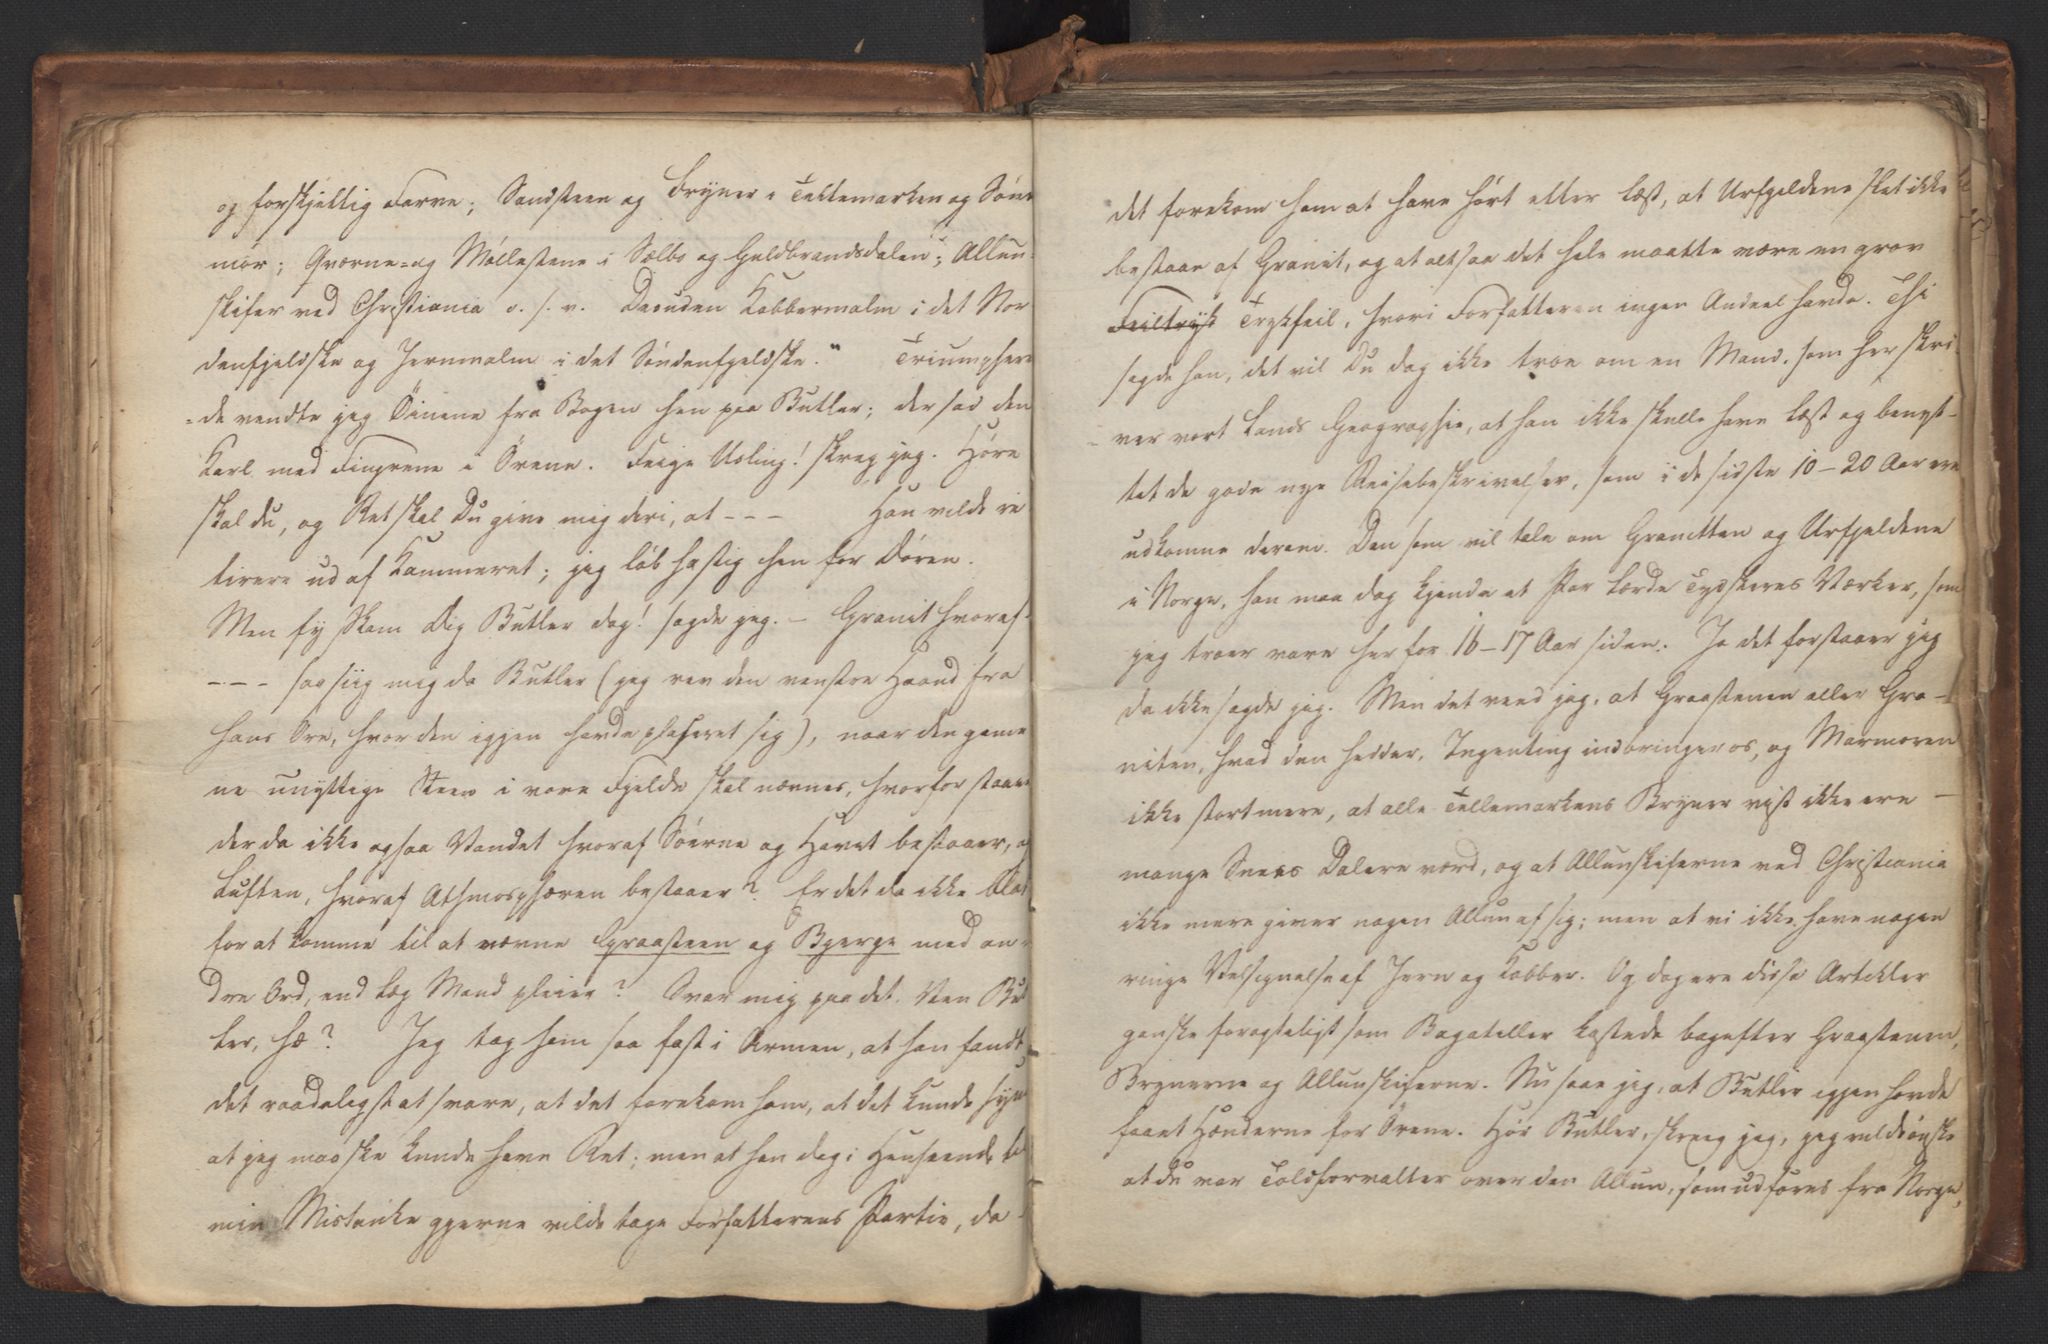 og forskjellig Farve; Sandsteen og Bryner i Tellemarken og Sönd
mör; Qværne- og Möllestene i Sælbo og Guldbrandsdalen; Allun-
skifer ved Christiania o. s. v. Desuden Kobbermalm i det Nor
denfjeldske og Jernmalm i det Söndenfjeldske." Triumphere
=de vendte jeg Öinene fra Bogen hen paa Butler; der sad den
Karl med Fingrene i Örene. Feige Usling! skreg jeg. Höre
skal du, og Ret skal Du give mig deri, at - - - Han vilde re
tirere ud af Kammeret; jeg löb hastig hen for Dören.
Men fy Skam dig Butler dog! sagde jeg. - Granit hvoraf-
- - - saa siig mig da Butler (jeg rev den venstre Haand fra
hans Öre, hvor den igjen havde plaseret sig), naar den geme
ne unyttige Steen i vore Fjelde skal nævnes, hvorfor staaer
der da ikke ogsaa Vandet hvoraf Söerne og Havet bestaaer, og
Luften, hvoraf Athmosphæren bestaaer? Er det da ikke blot
for at komme til at nævne Graasteen og Bjerge med an-
dre Ord, end Læg Mand pleier? Svar mig paa det. Ven But
ler, hæ? Jeg tog ham saa fast i Armen, at han fandt
det raadeligst at svare, at det forekom ham, at det kunde synes
at jeg maaske kunde have Ret; men at han dog i Henseende til
min Mistanke gjerne vilde tage Forfatterens Partie, da
det forekom ham at have hört eller læst, at Urfjeldene slet ikke
bestaae af Granit, og at altsaa det hele maatte være en grov
Feiltryk Trykfeil, hvori Forfatteren ingen Andeel havde. Thi
sagde han, det vil Du dog ikke troe om en Mand, som her skri
ver vort Lands Geographie, at han ikke skulle have læst og benyt-
tet de gode nye Reisebeskrivelser, som i de sidste 10-20 Aar ere
udkomne derom. Den som vil tale om Granitten og Urfjeldene
i Norge, han maa dog kjende et Par lærde Tydskeres Værker, som
jeg troer vare her for 16-17 Aar siden. Ja det forstaaer jeg
da ikke sagde jeg. Men det veed jeg, at Graastenen eller Gra-
niten, hvad den hedder, Ingenting indbringer os, og Marmoren
ikke stort mere, at alle Tellemarkens Bryner vist ikke ere
mange Snees Dalere værd, og at Allunskiferne ved Christiania
ikke mere giver nogen Allun af sig; men at vi ikke have nogen
ringe Velsignelse af Jern og Kobber. Og dog ere disse Artikler
ganske foragteligt som Bagateller kastede bagefter Graastenen,
Brynerne og Allunskiferne. Nu saae jeg, at Butler igjen havde
faaet Hænderne for Örene. Hör Butler, skreeg jeg, jeg vilde önske
at du var Toldforvalter over den Allun, som udföres fra Norge,